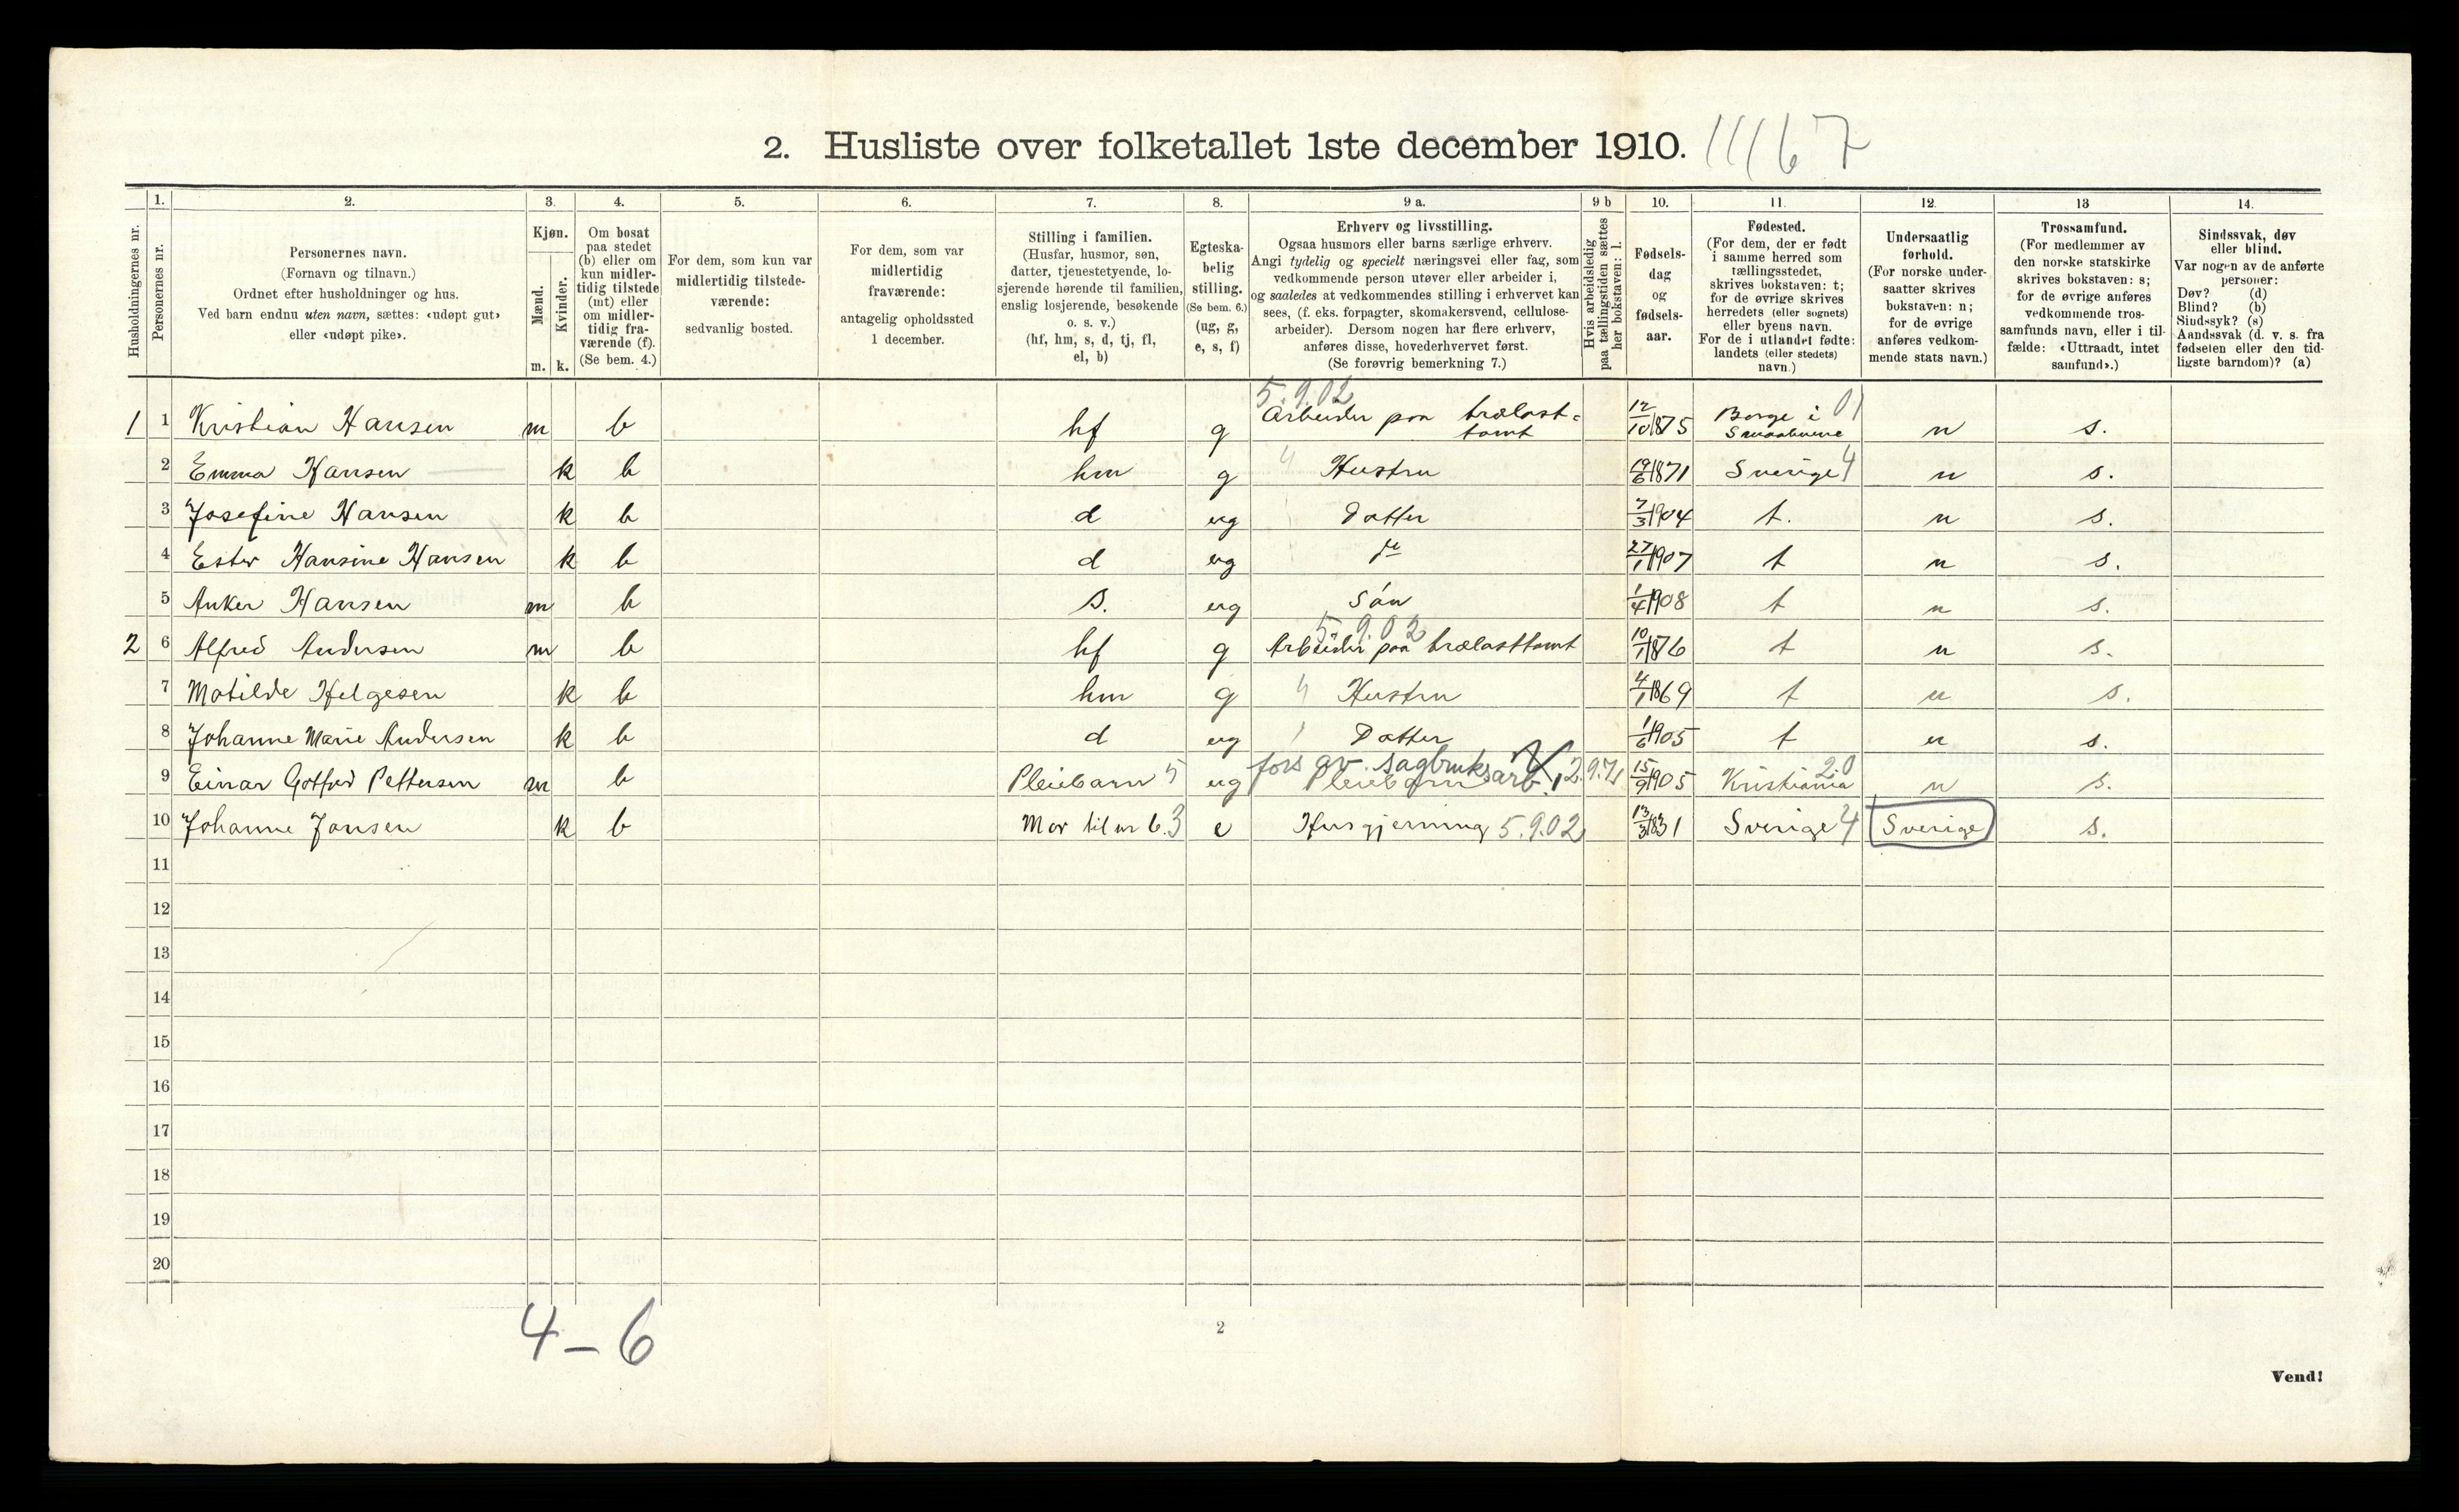 2. Husliste over folketallet 1ste december 1910. 11167
Husholdningernes nr.
1.
Personernes nr.
2.
Personernes navn.
(Fornavn og tilnavn.)
Ordnet efter husholdninger og hus.
Ved barn endnu uten navn, sættes: «udøpt gut»
eller «udøpt pike».
3.
Kjøn.
Mænd. Kvinder.
m. k.
4.
Om bosat
paa stedet
(b) eller om
kun midler-
tidig tilstede
(mt) eller
om midler-
tidig fra-
værende (f).
(Se bem. 4.)
5.
For dem, som kun var
midlertidig tilstede-
værende:
sedvanlig bosted.
6.
For dem, som var
midlertidig
fraværende:
antagelig opholdssted
1 december.
7.
Stilling i familien.
(Husfar, husmor, søn,
datter, tjenestetyende, lo-
sjerende hørende til familien,
enslig losjerende, besøkende
o. s. v.)
(hf, hm, s, d, tj, fl,
el, b)
8.
Egteska-
belig
stilling.
(Se bem. 6.)
(ug, g,
e, s, f)
9 a.
Erhverv og livsstilling.
Ogsaa husmors eller barns særlige erhverv.
Angi tydelig og specielt næringsvei eller fag, som
vedkommende person utøver eller arbeider i,
og saaledes at vedkommendes stilling i erhvervet kan
sees, (f. eks. forpagter, skomakersvend, cellulose-
arbeider). Dersom nogen har flere erhverv,
anføres disse, hovederhvervet først.
(Se forøvrig bemerkning 7.)
9 b
Hvis arbeidsledig
paa tællingstiden sættes
her bokstaven: l.
10.
Fødsels-
dag
og
fødsels-
aar.
11.
Fødested.
(For dem, der er født
i samme herred som
tællingsstedet,
skrives bokstaven: t;
for de øvrige skrives
herredets (eller sognets)
eller byens navn.
For de i utlandet fødte:
landets (eller stedets)
navn.)
12.
Undersaatlig
forhold.
(For norske under-
saatter skrives
bokstaven: n;
for de øvrige
anføres vedkom-
mende stats navn.)
13
Trossamfund.
(For medlemmer av
den norske statskirke
skrives bokstaven: s;
for de øvrige anføres
vedkommende tros-
samfunds navn, eller i til-
fælde: «Uttraadt, intet
samfund».)
14.
Sindssvak, døv
eller blind.
Var nogen av de anførte
personer:
Døv? (d)
Blind? (b)
Sindssyk? (s)
Aandssvak (d. v. s. fra
fødselen eller den tid-
ligste barndom)? (a)
5.9.02
1 1 Kristian Hansen m b hf g Arbeider paa trælast= tomt 12/10 1875 Borge i Smaalenene 01 n s.
2 Emma Hansen k b hm g 4 Hustru 19/6 1871 Sverige 4 n s.
3 Josefine Hansen k b d ug Datter 7/3 1904 t. n s.
4 Ester Hansine Hansen k b d ug do 27/1 1907 t n s.
5 Anker Hansen m b s. ug Søn 1/4 1908 t n s.
5 9 02
2 6 Alfred Andersen m b hf g Arbeider paa trælasttomt 10/1 1876 t n s.
7 Matilde Helgesen k b hm g 4 Hustru 4/1 1869 t n s.
8 Johanne Marie Andersen k b d ug 1 Datter 1/6 1905 t n s.
fors av. sagbruksarb. 2.9.71
9 Einar Gotfred Pettersen m b Pleiebarn 5 ug Pleiebarn 15/9 1905 Kristiania 20 n s.
10 Johanne Jansen k b Mor til nr 6. 3 e Husgjerning 5.9.02 13/3 1831 Sverige 4 Sverige s.
11
12
13
14
15
16
17
18
19
20
4 - 6
2
Vend!